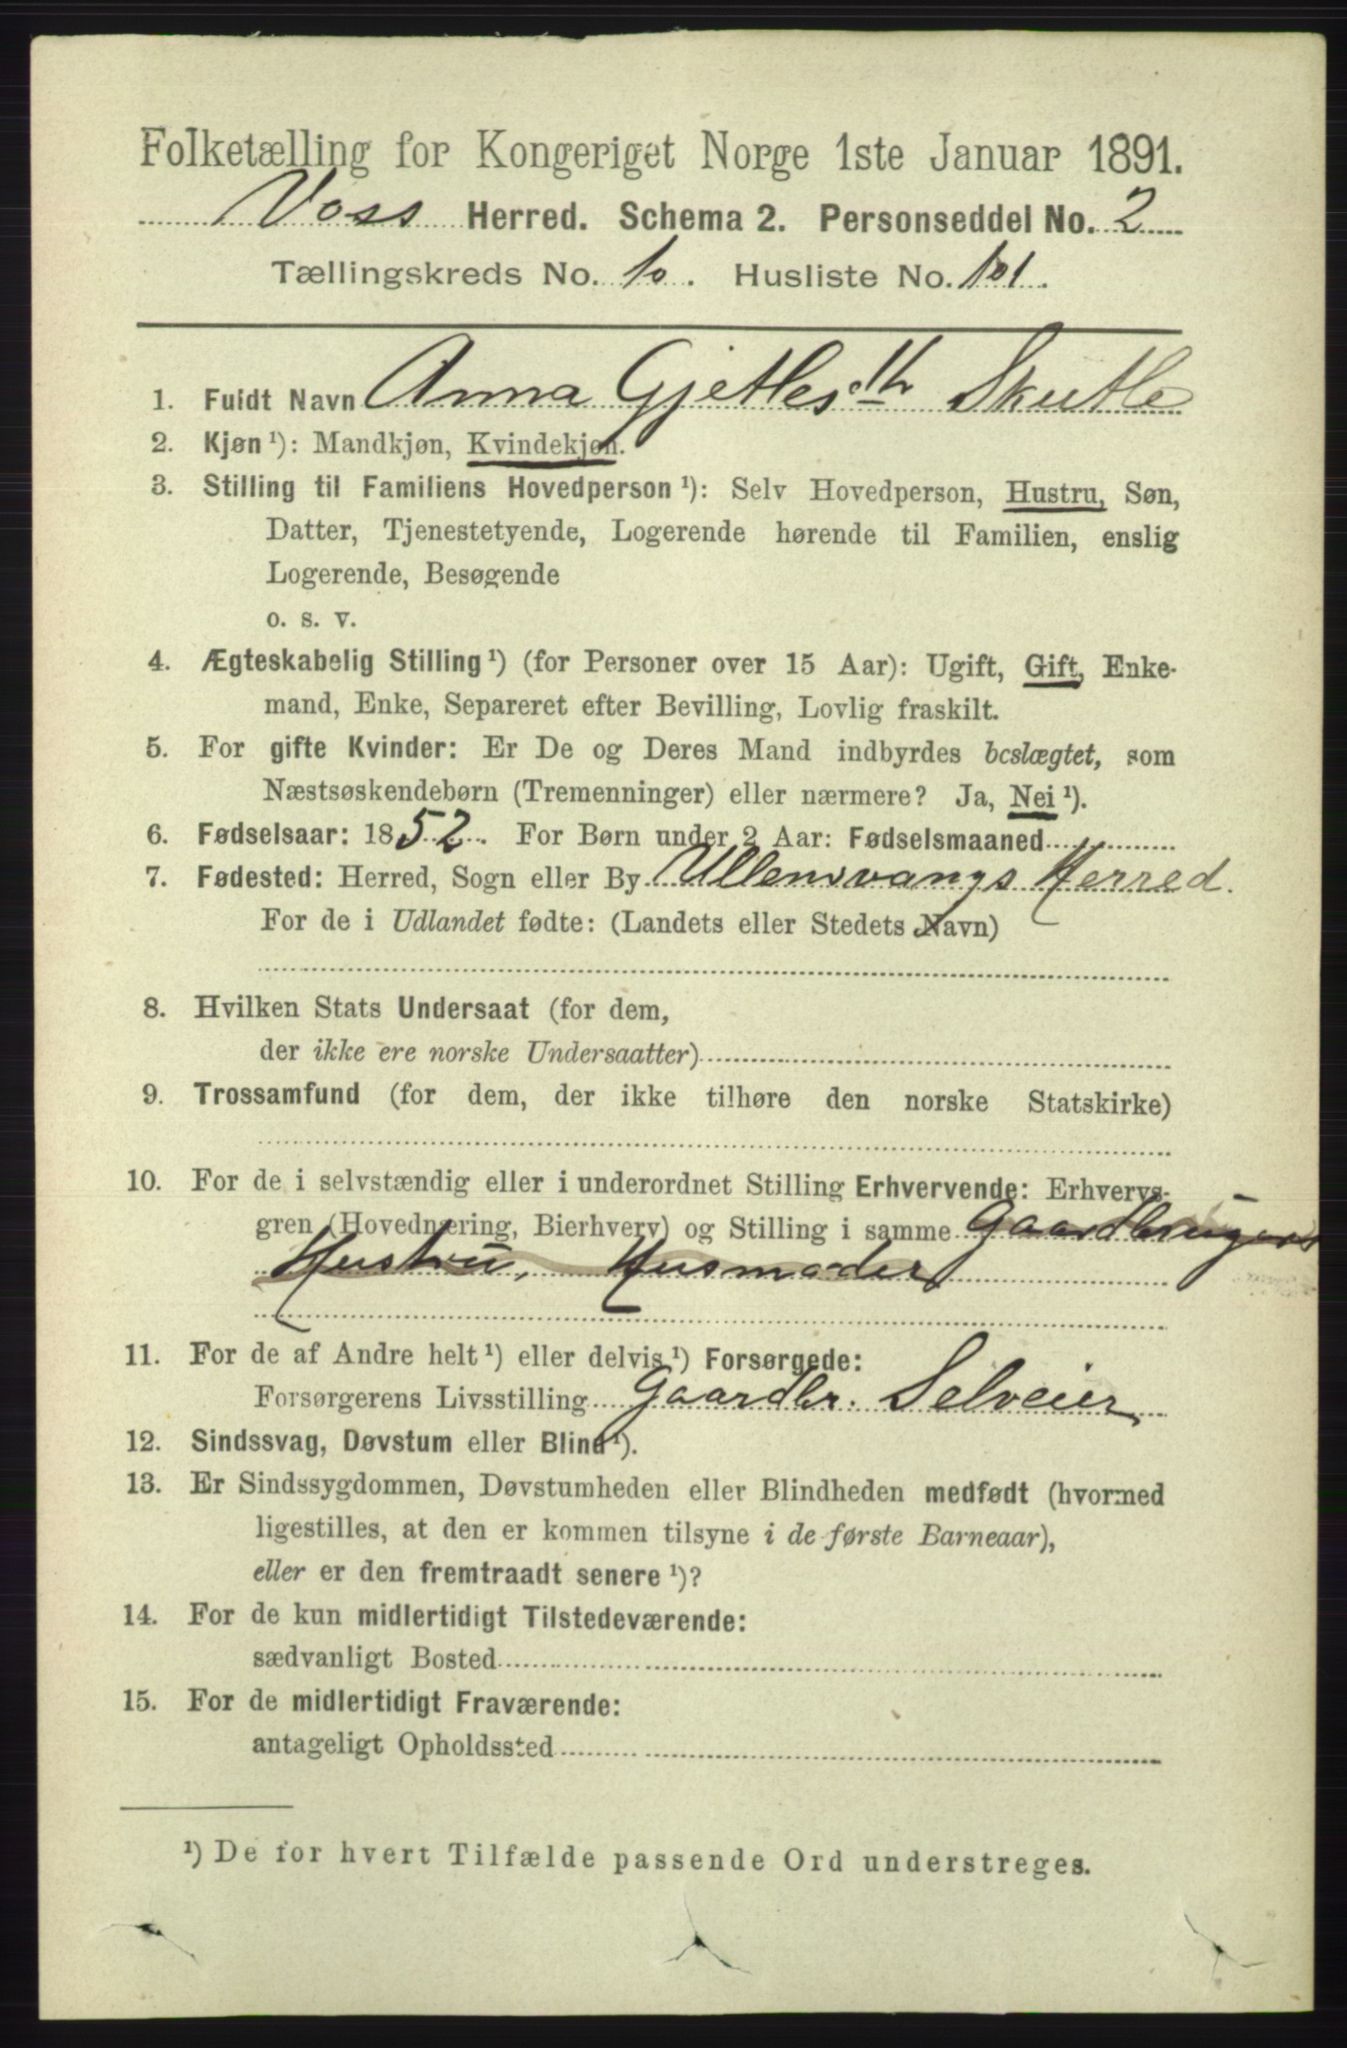 Folketælling for Kongeriget Norge 1ste Januar 1891.
Voss Herred. Schema 2. Personseddel No. 2
Tællingskreds No. 10. Husliste No. 101.
1. Fuldt Navn Anna Gjetlesdtr Skutle
2. Kjøn ¹): Mandkjøn, Kvindekjøn.
3. Stilling til Familiens Hovedperson ¹): Selv Hovedperson, Hustru, Søn,
Datter, Tjenestetyende, Logerende hørende til Familien, enslig
Logerende, Besøgende
o. s. v.
4. Ægteskabelig Stilling ¹) (for Personer over 15 Aar): Ugift, Gift, Enke-
mand, Enke, Separeret efter Bevilling, Lovlig fraskilt.
5. For gifte Kvinder: Er De og Deres Mand indbyrdes beslægtet, som
Næstsøskendebørn (Tremenninger) eller nærmere? Ja, Nei ¹).
6. Fødselsaar: 1852. For Børn under 2 Aar: Fødselsmaaned
7. Fødested: Herred, Sogn eller By Ullensvangs Herred.
For de i Udlandet fødte: (Landets eller Stedets Navn)
8. Hvilken Stats Undersaat (for dem,
der ikke ere norske Undersaatter)
9. Trossamfund (for dem, der ikke tilhøre den norske Statskirke)
10. For de i selvstændig eller i underordnet Stilling Erhvervende: Erhvervs-
gren (Hovednæring, Bierhverv) og Stilling i samme Gaardbrugers
Hustru, Husmoder
11. For de af Andre helt ¹) eller delvis ¹) Forsørgede:
Forsørgerens Livsstilling Gaardbr. Selveier
12. Sindssvag, Døvstum eller Blind ¹).
13. Er Sindssygdommen, Døvstumheden eller Blindheden medfødt (hvormed
ligestilles, at den er kommen tilsyne i de første Barneaar),
eller er den fremtraadt senere ¹)?
14. For de kun midlertidigt Tilstedeværende:
sædvanligt Bosted
15. For de midlertidigt Fraværende:
antageligt Opholdssted
¹) De for hvert Tilfælde passende Ord understreges.